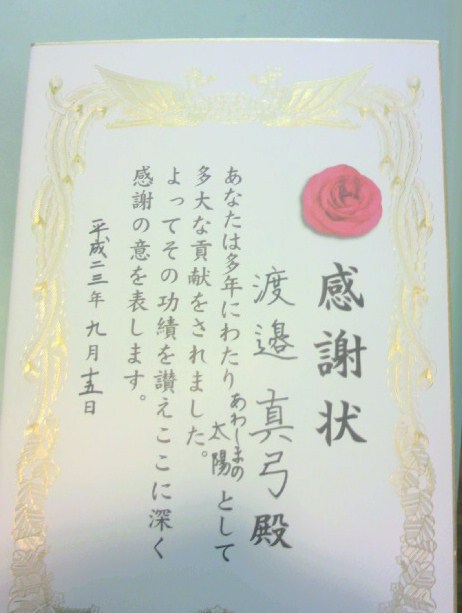 感謝状
渡邉真弓殿
あなたは多年にわたりあわしまの太陽として
多大な貢献をされました。
よってその功績を讃えここに深く
感謝の意を表します。
平成二三年九月十五日